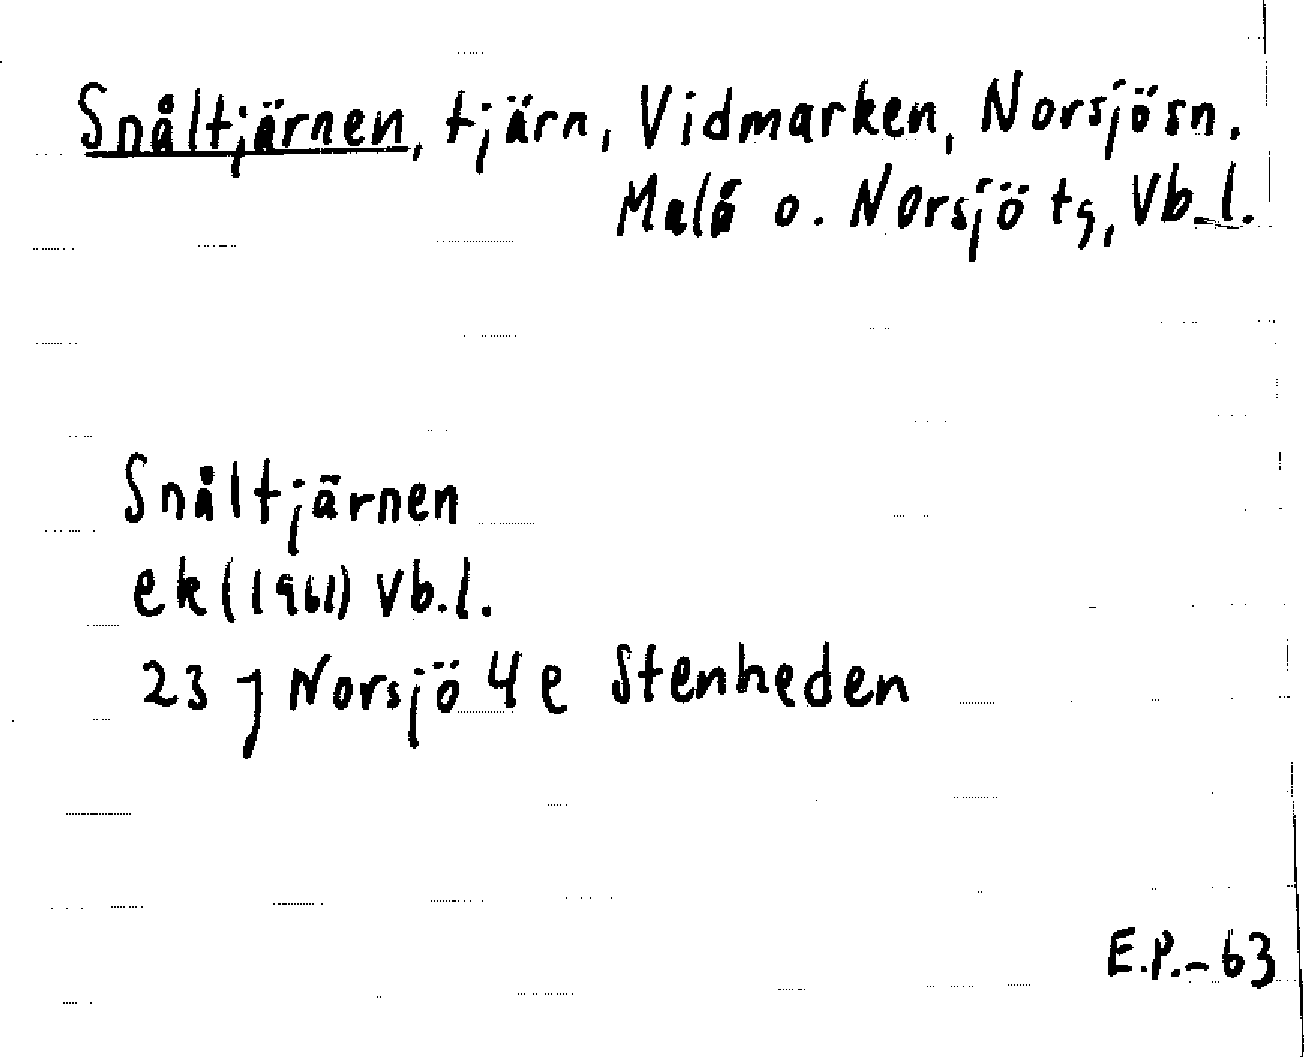 Snåltjärnen, tjärn, Vidmarken, Norsjösn.
Malå o. Norsjö tg, Vb.l.
Snåltjärnen
ek (1961) Vb.l.
23 J Norsjö 4 e Stenheden
E.P.-63